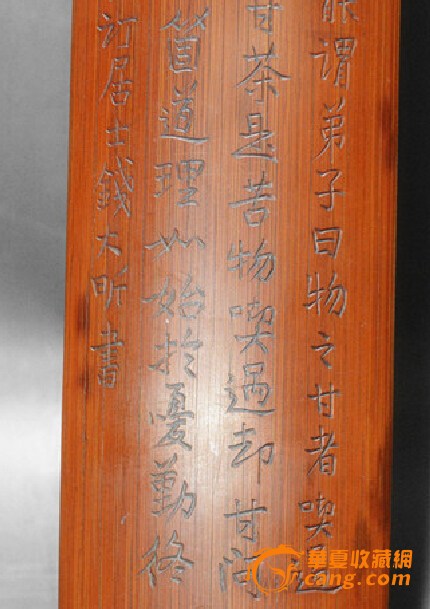 謂弟子曰物之甘者喫過
甘茶是苦物喫過却甘問
箇道理如始於憂勤終
汀居士錢大昕書
華夏收藏網
cang.com